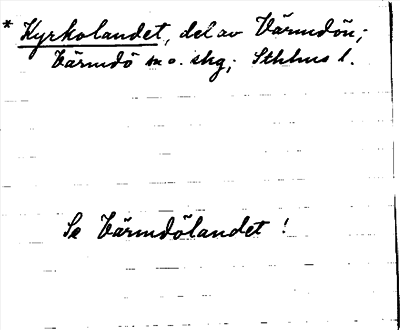 * Kyrkolandet, del av Värmdön;
Värmdö sn o. skg; Sthlms l.
Se Värmdölandet!